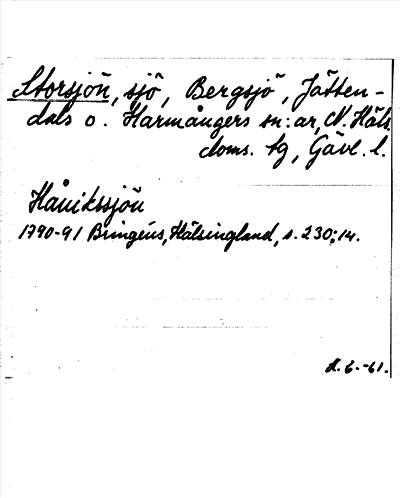 Storsjön, sjö, Bergsjö, Jätten-
dals o. Harmångers sn:ar, N. Häls.
doms. tg, Gävl. l.
Håvikssjön
1790-91 Bringéus, Hälsingland, s. 230; 14.
6.-61.